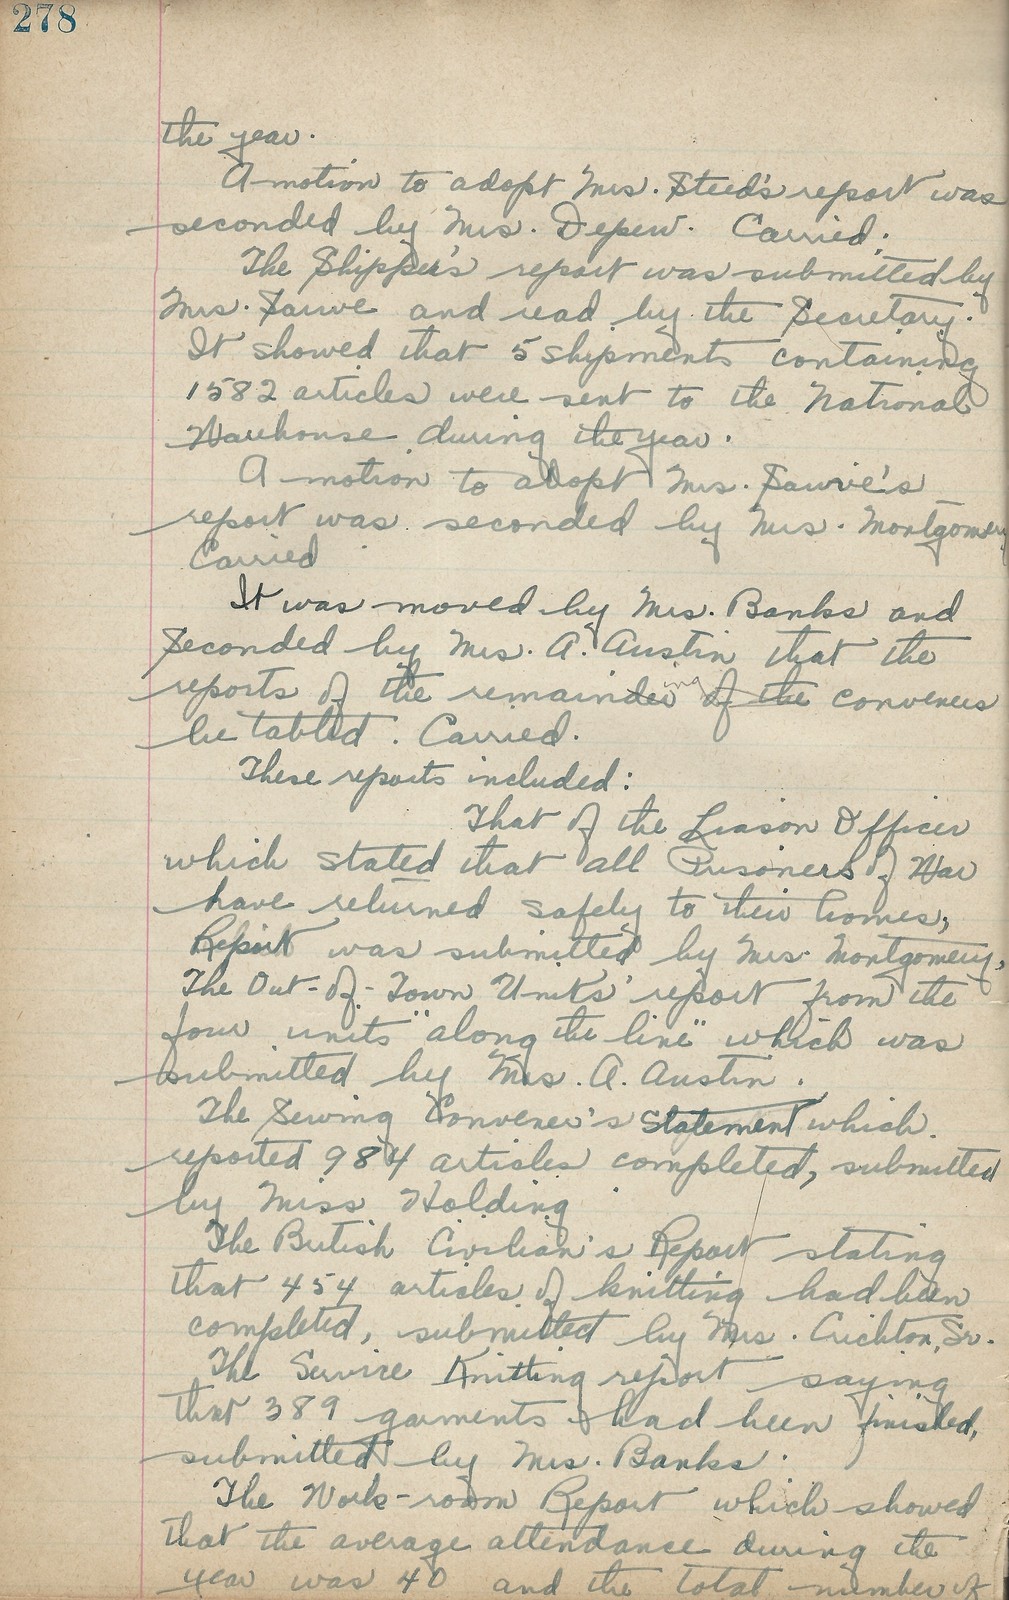 278
the year.
A motion to adopt Mrs. Steed's report was
seconded by Mrs. Depew. Carried.
The Shipper's report was submitted by
Mrs. and read by the Secretary.
It showed that 5 shipments containing
1582 articles were sent to the National
Warehouse during the year.
A motion to adopt Mrs.
report was seconded by Mrs. Montgomery
Carried
It was moved by Mrs. Banks and
Seconded by Mrs. A. Austin that the
reports of the remainder ing of the conveners
be tabled. Carried.
These reports included:
That of the Liason Officer
which stated that all Prisoners of War
have returned safely to their homes,
Report was submitted by Mrs. Montgomery,
The Out-of-Town Units' report from the
four units "along the line" which was
submitted by Mrs. A. Austin.
The Sewing Convener's Statement which
reported 984 articles completed, submitted
by Miss Holding.
The British Civilian's Report stating
that 454 articles of knitting had been
completed, submitted by Mrs. Crichton, Sr.
The Service Knitting report saying
that 389 garments had been finished,
submitted by Mrs. Banks.
The Work-room Report which showed
that the average attendance during the
year was 40 and the total number of